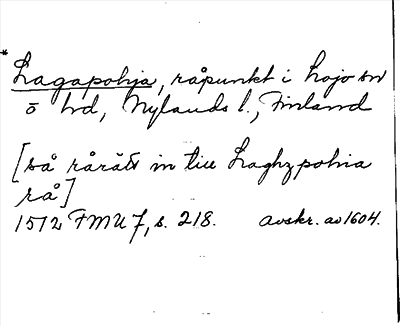 * Lagapohja, råpunkt i Lojo sn
ö hd, Nylands l., Finland
[så rårätt in till Laghzpohia
rå]
1512 FMU 7, s. 218. avskr. av 1604.